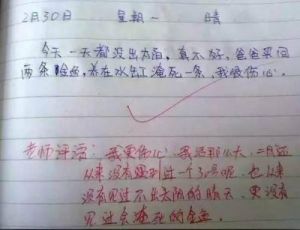 2月30日 星期一 晴
今天一天都没出太阳,真不好。爸爸买回
两条金鱼,养在水缸淹死一条,我很伤心。
老师评语:我更伤心!我活那么大,二月还
从来没有遇到过一个30号呢,也从来
没有见过不出太阳的晴天,更没有
见过会淹死的金鱼。